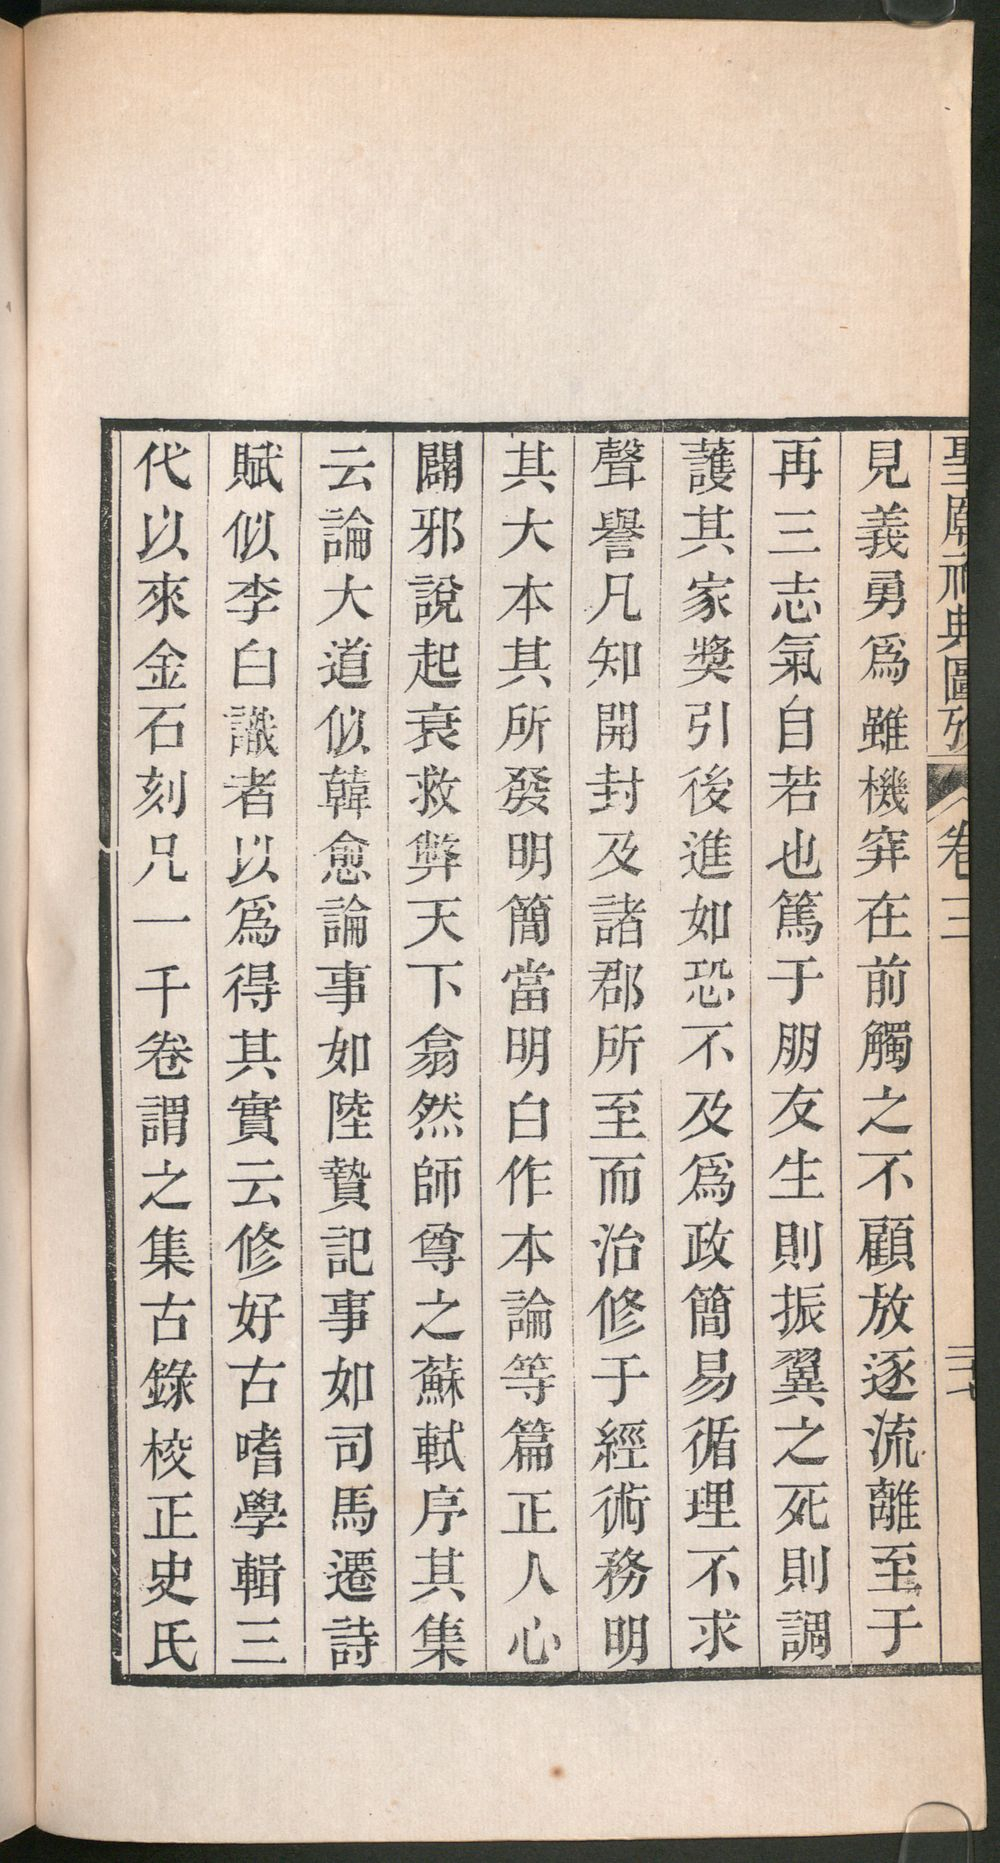 聖廟祀典圖攷 卷三 三十七
見義勇爲雖機穽在前觸之不顧放逐流離至于
再三志氣自若也篤于朋友生則振翼之死則調
護其家奬引後進如恐不及爲政簡易循理不求
聲譽凡知開封及諸郡所至而治修于經術務明
其大本其所發明簡當明白作本論等篇正人心
闢邪說起衰救弊天下翕然師尊之蘇軾序其集
云論大道似韓愈論事如陸贄記事如司馬遷詩
賦似李白識者以爲得其實云修好古嗜學輯三
代以來金石刻凡一千卷謂之集古錄校正史氏